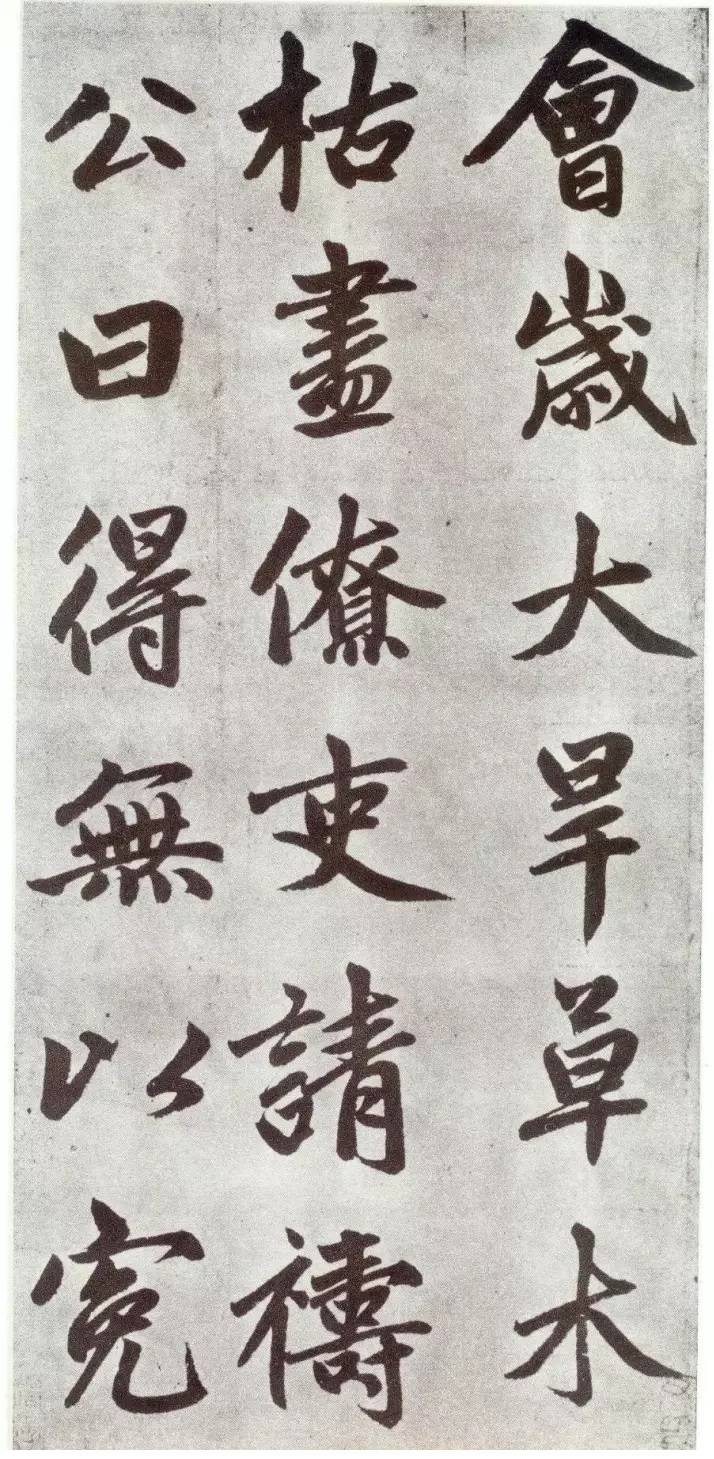 會歲大旱草木
枯盡僚吏請禱
公曰得無以寃